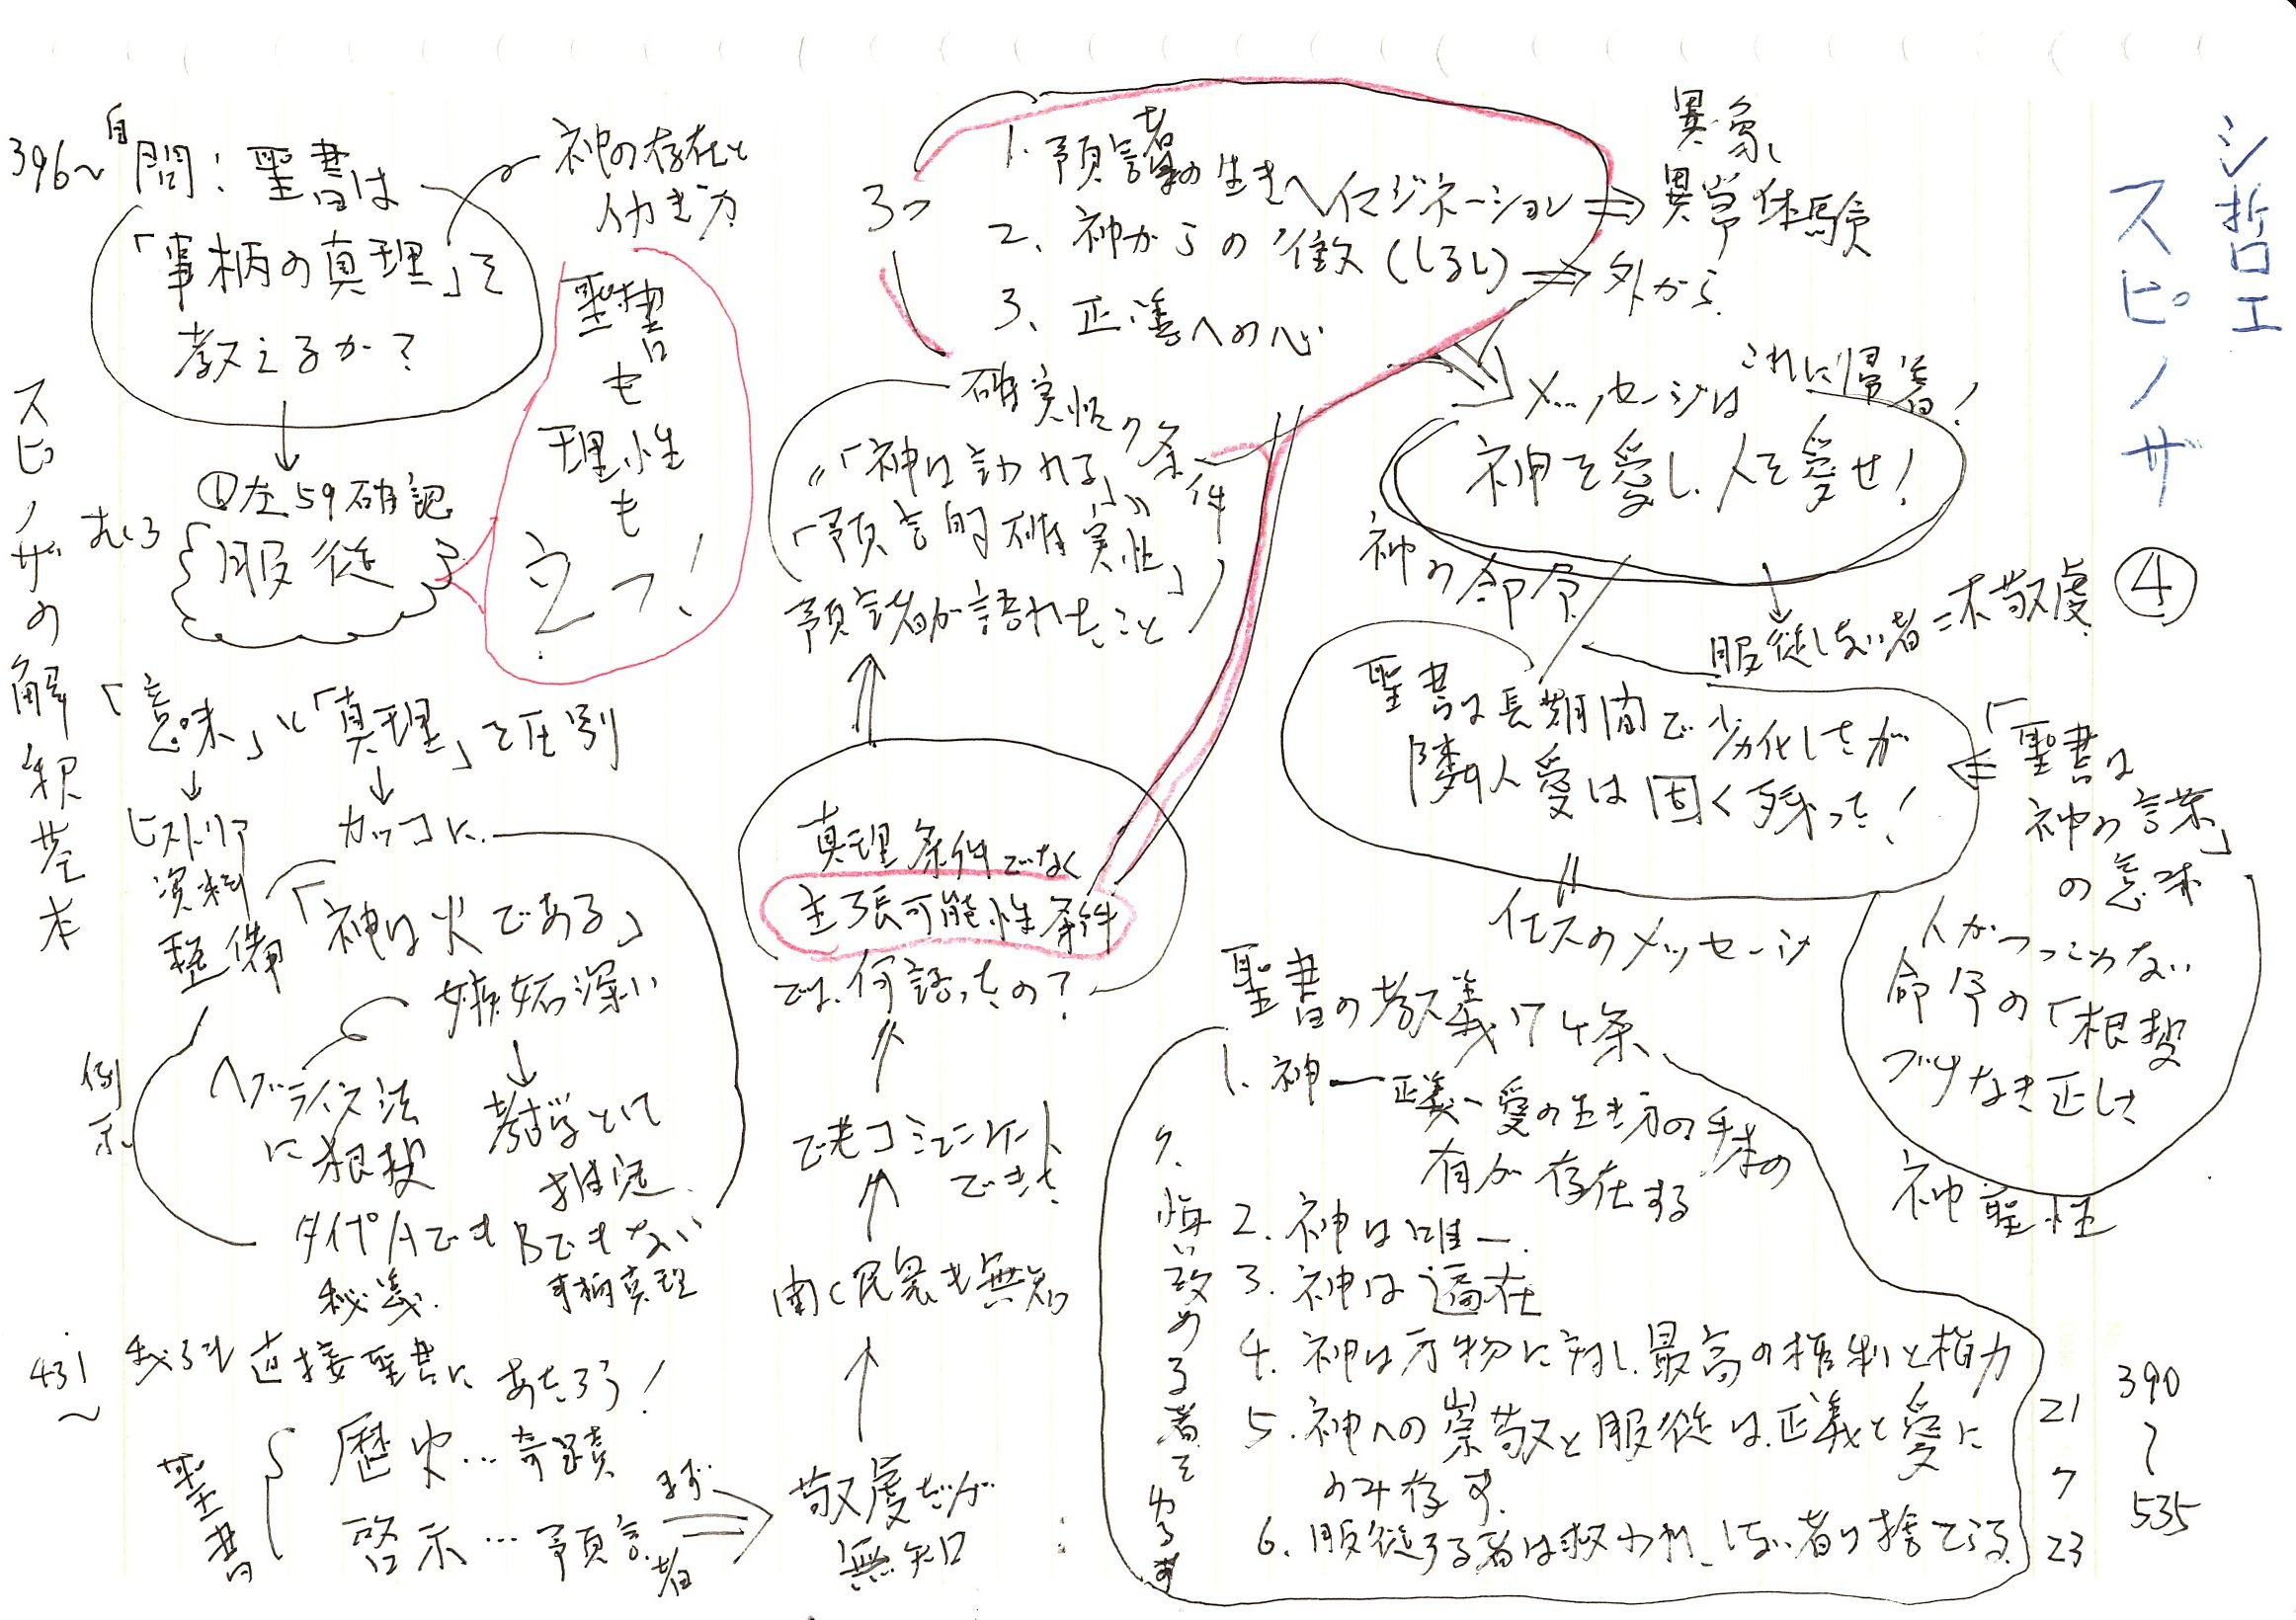 シ哲工
スピノザ
④
21
7
23
390
〜
535
396〜
自問：聖書は
「事柄の真理」を
教えるか？
神の存在と
働き方
①左59確認
むしろ
服従
聖書
も
理性
も
立つ！
スピノザの解釈基本
「意味」と「真理」を区別
ヒストリア
資料
整備
カッコに
「神は火である」
嫉妬深い
例示
ヘブライズ法
に根拠
考古学として
推定
タイプAでも
Bでもない
秘義
事柄真理
431〜
我らも直接聖書にあたろう！
聖書
歴史…奇蹟
啓示…預言者
まず
敬虔だが
無知
聞く民衆も無知
でもコミュニケート
できた
では、何語ったの？
真理条件でなく
主張可能性条件
確実性の条件
《「神は言われる」》
「預言的確実性」
預言者が語れたこと
3つ
1. 預言者の生きイマジネーション
2. 神からの徴（しるし）
3. 正・善への心
異象、
異常体験
外から
メッセージはこれに帰着！
神を愛し、人を愛せ！
神の命令
服従しない者＝不敬虔
聖書は長期間で劣化したが
隣人愛は固く残った！
イエスのメッセージ
「聖書は
神の言葉」
の意味
人がつつめない
命令の「根拠
づけなき正しさ
神聖性
聖書の教義 7ヶ条
1. 神－正義・愛の生き方の手本の
有が存在する
2. 神は唯一
3. 神は遍在
4. 神は万物に対し、最高の権利と権力
5. 神への崇敬と服従は、正義と愛に
のみ存す
6. 服従する者は救われ、しない者は捨てらる
7. 悔い改める者を